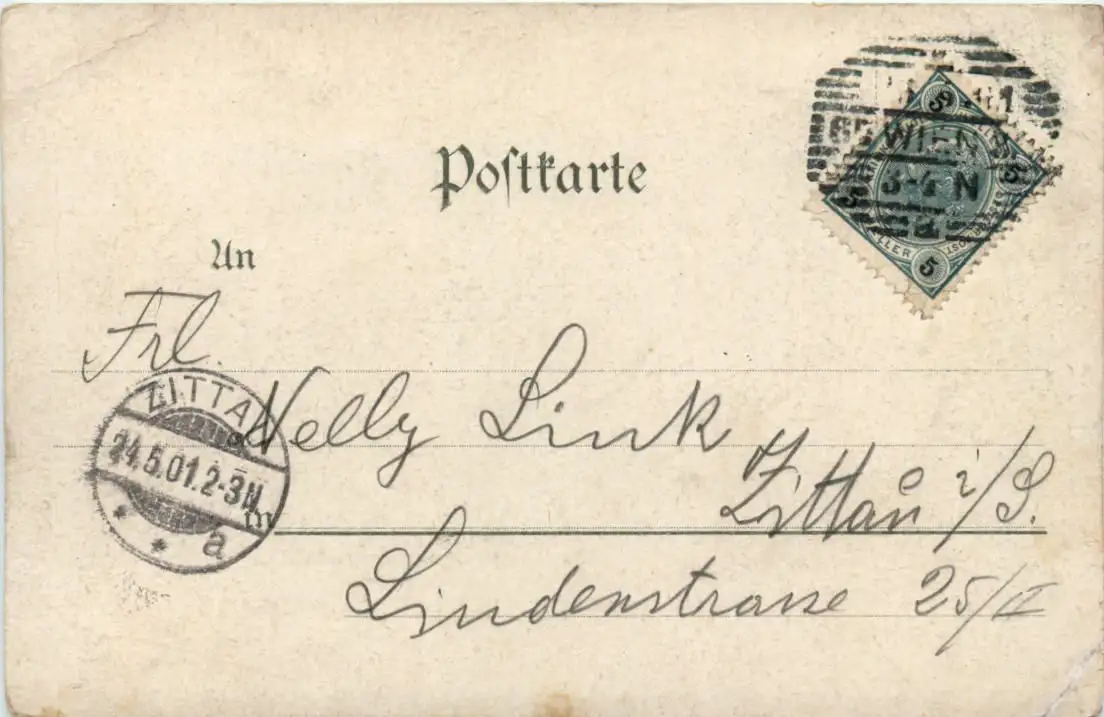 Postkarte
WIEN
3-4 N
5
5
5
5
HELLER
An
Frl.
ZITTAU
Nelly Link
24.5.01.2-3N.
Zittau i/S.
in
a
Lindenstrasse 25/II